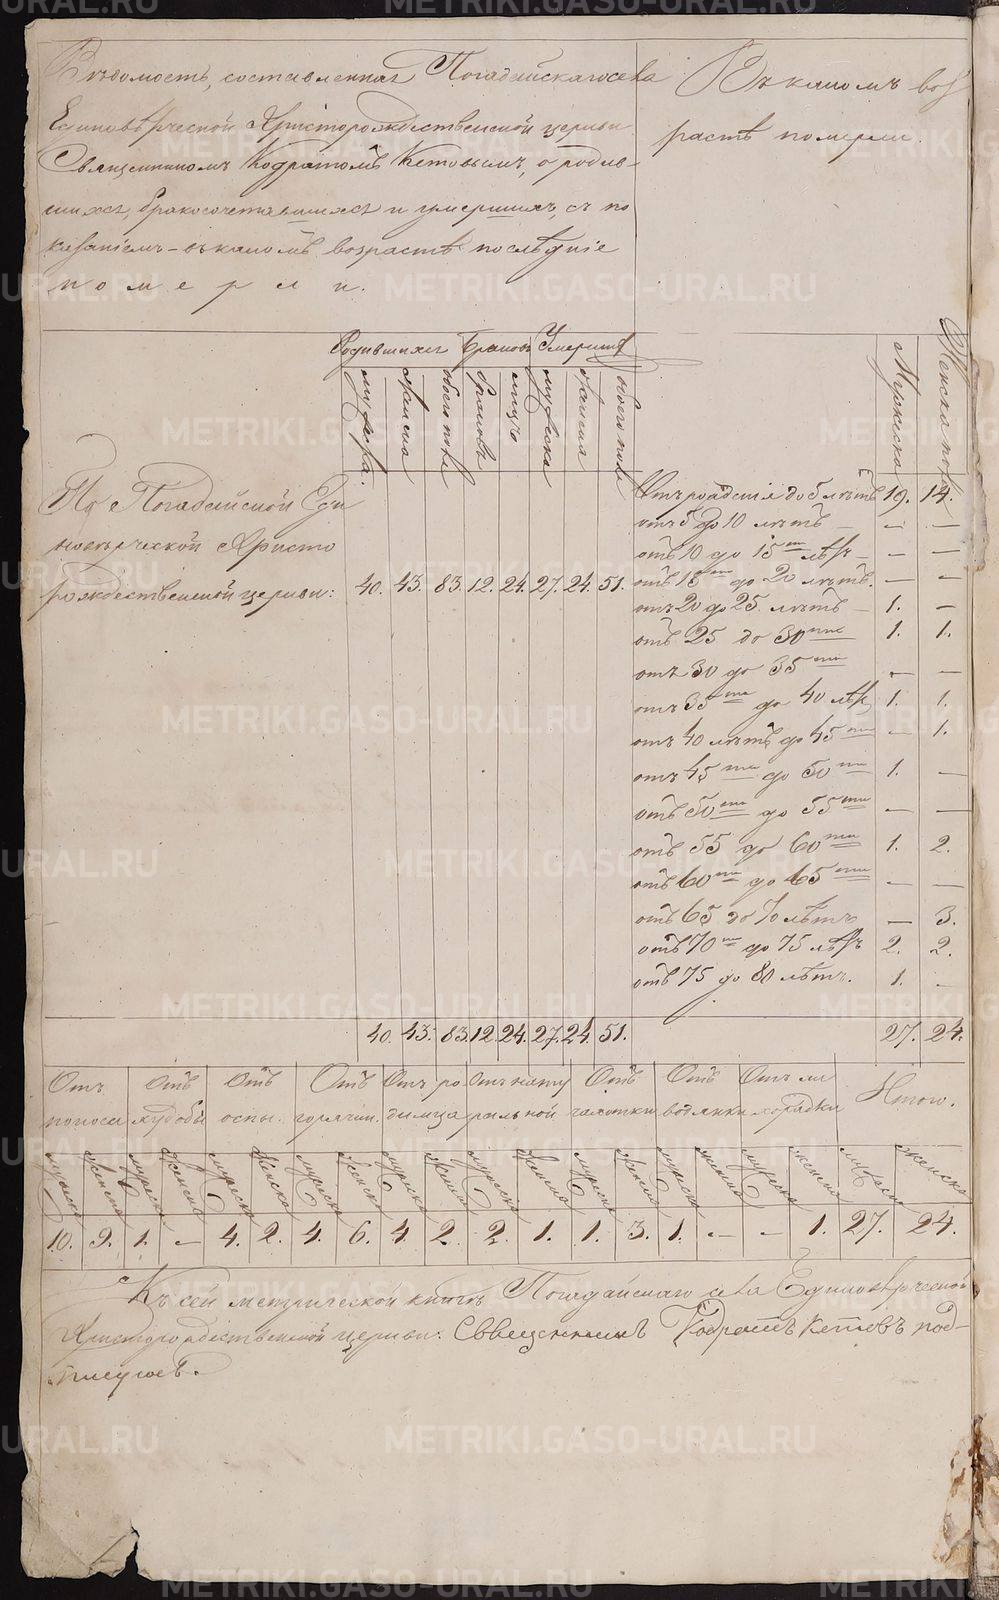 Вѣдомость, составленная Погадайскаго села
Единовѣрческой Христорождественской церкви
Священникомъ Кодратомъ Кетовымъ, о родив-
шихся, бракосочетавшихся и умершихъ, съ по
казаніемъ – въ какомъ возрастѣ послѣдніе
померли.
Въ какомъ воз
растѣ померли.
Родившихся Браковъ Умершихъ
мужеска. женска обоего пола браковъ лицъ мужеска женска обоего пола
Мужеска Женска пола
По Погадайской Еди
новѣрческой Христо
рождественской церкви: 40. 43. 83. 12. 24. 27. 24. 51.
Отъ рожденія до 5 лѣтъ 19. 14.
отъ 5 до 10 лѣтъ — — —
отъ 10 до 15ти лѣтъ — — —
отъ 15ти до 20 лѣтъ. — —
отъ 20 до 25 лѣтъ — 1. —
отъ 25 до 30ти 1. 1.
отъ 30 до 35ти — —
отъ 35ти до 40 лѣтъ 1. 1.
отъ 40 лѣтъ до 45ти — 1.
отъ 45ти до 50ти 1. —
отъ 50ти до 55ти — —
отъ 55 до 60ти 1. 2.
отъ 60ти до 65ти — —
отъ 65 до 70 лѣтъ — 3.
отъ 70ти до 75 лѣтъ 2. 2.
отъ 75 до 80 лѣтъ. 1. —
40. 43. 83. 12. 24. 27. 24. 51. 27. 24.
Отъ поноса
Отъ худобы
Отъ оспы.
Отъ горячки.
Отъ родимца
Отъ натуральной
Отъ чахотки
Отъ водянки
Отъ лихорадки
Итого.
мужеска женска мужеска женска мужеска женска мужеска женска мужеска женска мужеска женска мужеска женска мужеска женска мужеска женска мужеска женска
10. 9. 1. — 4. 2. 4. 6. 4. 2. 2. 1. 1. 3. 1. — — 1. 27. 24.
Къ сей метрической книгѣ Погадайскаго села Единовѣрческой
Христорождественской церкви: Священникъ Кодратъ Кетовъ под-
писуюсь.
METRIKI.GASO-URAL.RU